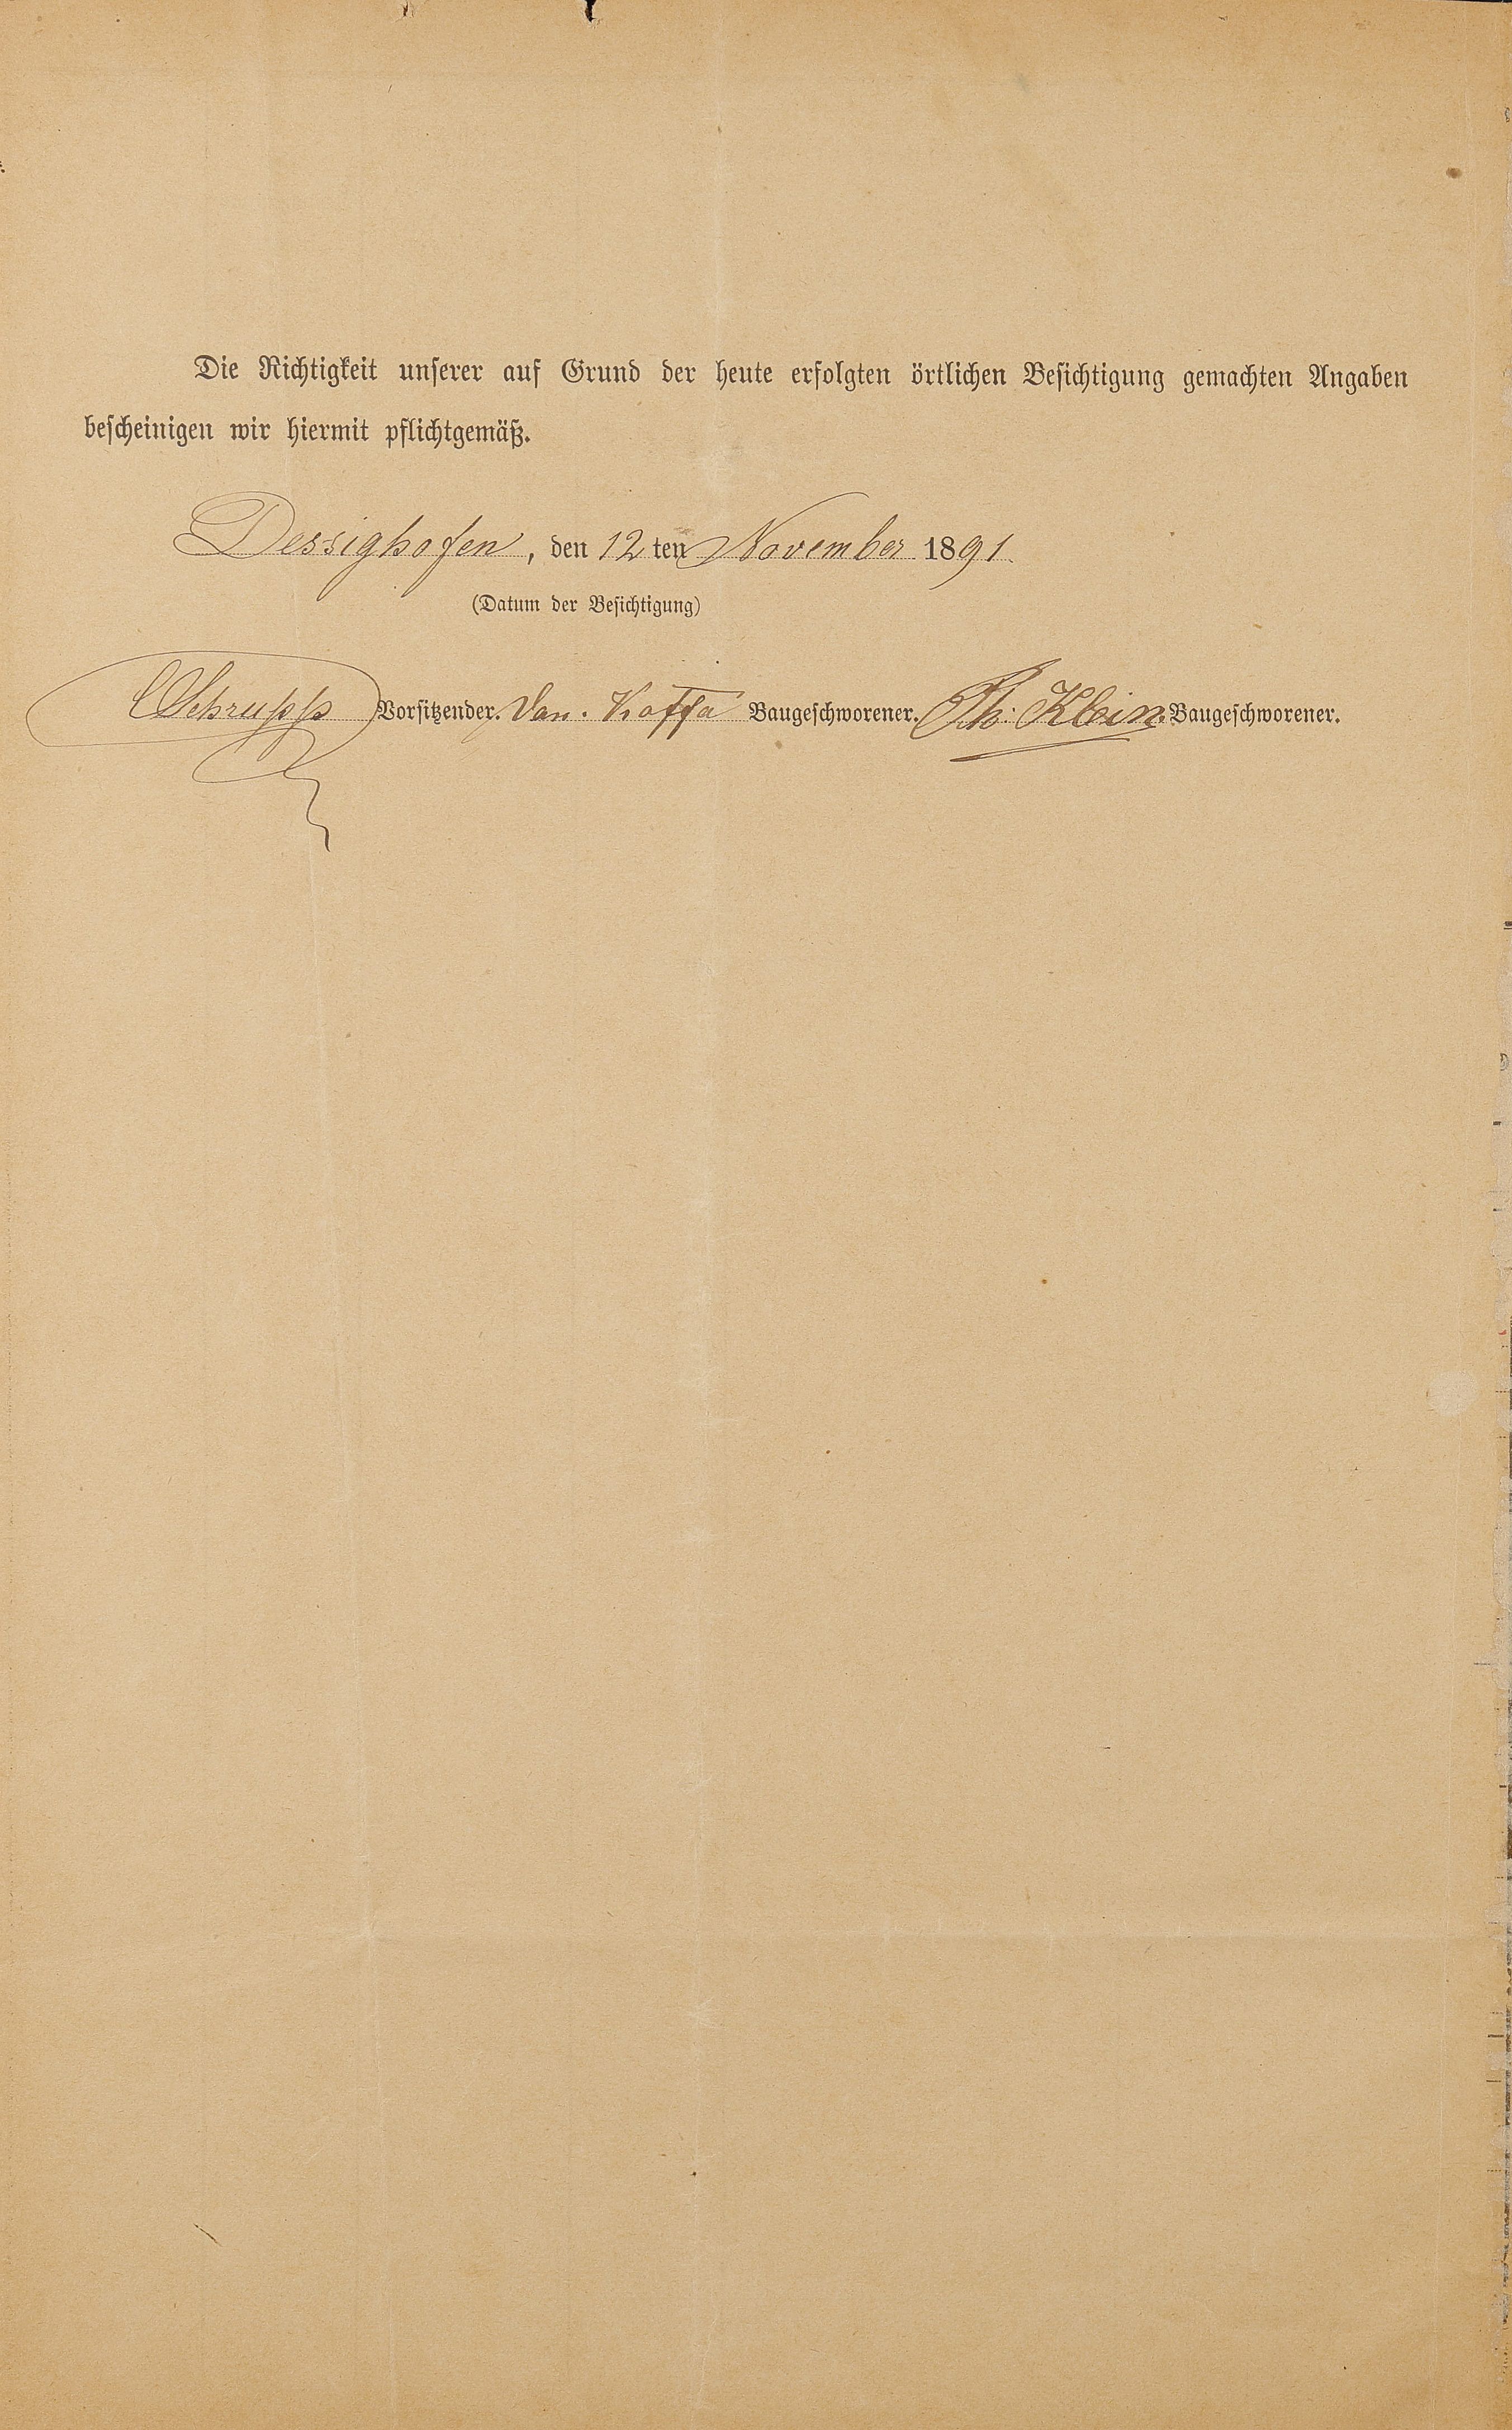 Die Richtigkeit unserer auf Grund der heute erfolgten örtlichen Besichtigung gemachten Angaben
bescheinigen wir hiermit pflichtgemäß.
Dessighofen, den 12ten November 1891
(Datum der Besichtigung)
CSchrupp Vorsitzender. Dan. Baugeschworener. Ph. Klein Baugeschworener.